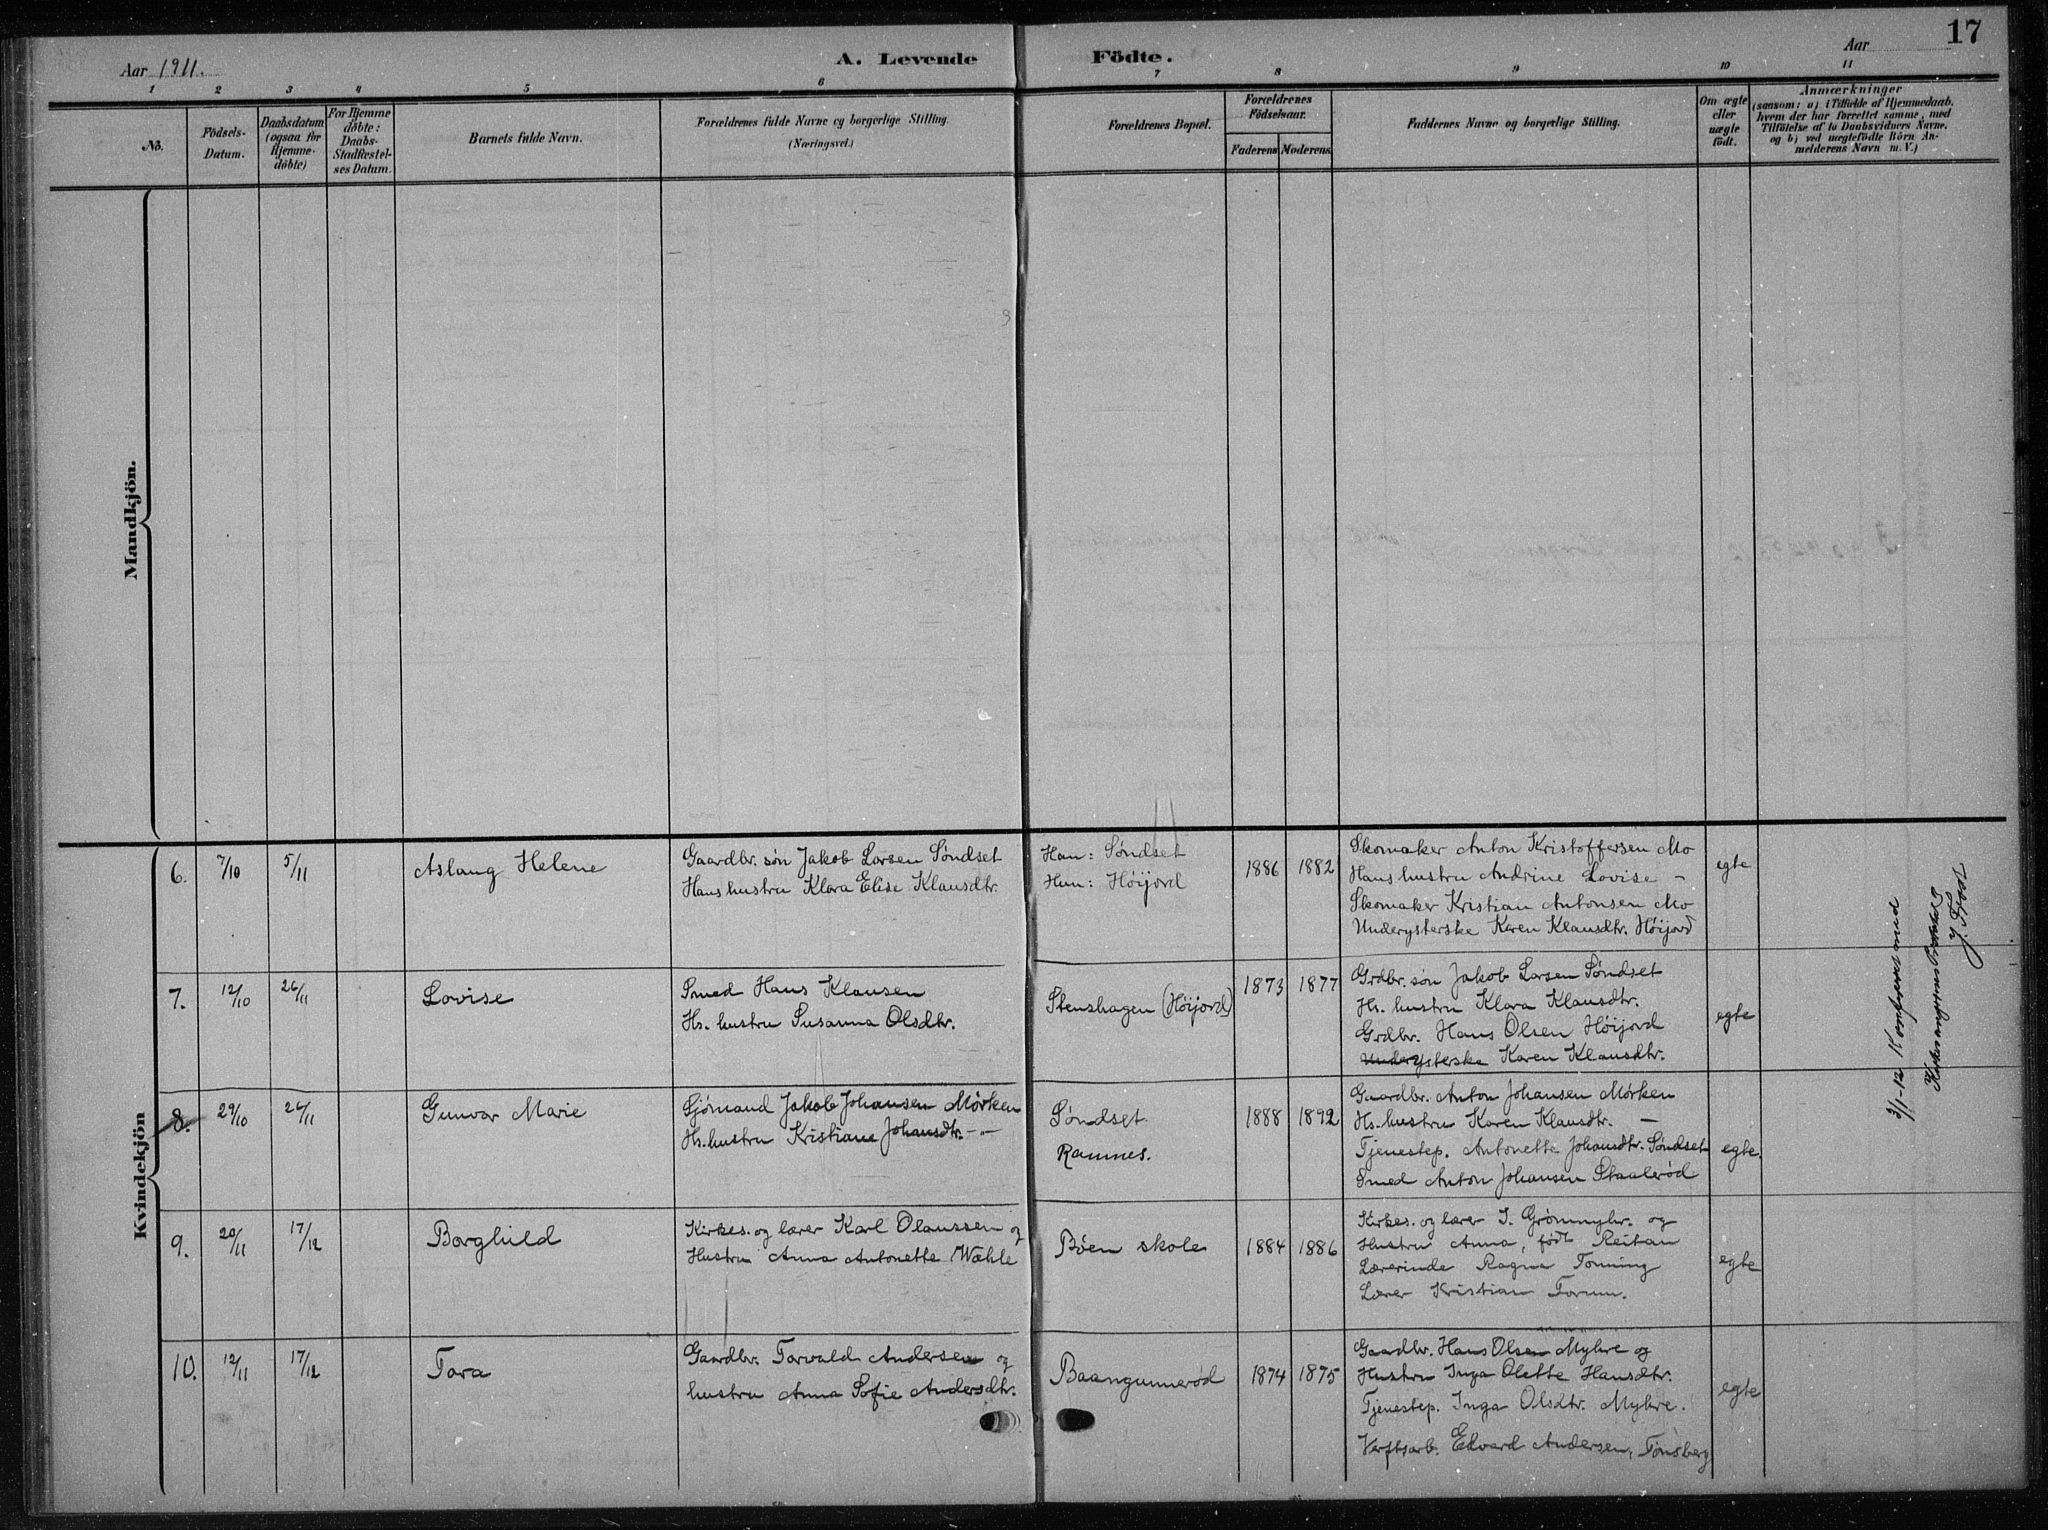 17
Aar 1911.
A. Levende Födte.
Aar
1 2 3 4 5 6 7 8 9 10 11
No.
Födsels-
Datum.
Daabsdatum
(ogsaa for
Hjemme-
døbte)
For Hjemme
døbte:
Daabs-
Stadfæstel-
ses Datum.
Barnets fulde Navn.
Forældrenes fulde Navne og borgerlige Stilling.
(Næringsvei.)
Forældrenes Bopæl.
Forældrenes
Födselsaar.
Faderens Moderens.
Faddernes Navne og borgerlige Stilling.
Om ægte
eller
uægte
födt.
Anmærkninger
(saasom: a) i Tilfælde af Hjemmedaab,
hvem der har forrettet samme, med
Tilföielse af to Daabsvidners Navne,
og b) ved uægtefödte Börn An-
melderens Navn m. V.)
Mandkjön.
Kvindekjön
6. 7/10 5/11 Aslaug Helene
Gaardbr. søn Jakob Larsen Søndset
Hans hustru Klara Elise Klausdtr.
Han: Søndset
Hun: Höijord
1886 1882
Skomaker Anton Kristoffersen Mo
Hans hustru Andrine Lovise -
Skomaker Kristian Antonsen Mo
Undersysterske Karen Klausdtr. Höijord
egte
7. 12/10 26/11 Lovise
Smed Hans Klausen
Hs. hustru Susanna Olsdtr.
Stenshagen (Höijord)
1873 1877
Grdbr. søn Jakob Larsen Søndset
Hs. hustru Klara Klausdtr.
Grdbr. Hans Olsen Höijord
Karen Klausdtr.
egte
8. 29/10 26/11 Gunvor Marie
Sjömand Jakob Johansen Mörken
Hs. hustru Kristiane Johansdtr. -"-
Søndset
Ramnes.
1888 1892
Gaardbr. Anton Johansen Mørken
Hs. hustru Karen Klausdtr. -
Tjenestep. Antonette Johansdtr. Søndset
Smed Anton Johansen Staalerød
egte.
9. 20/11 17/12 Borghild
Kirkes. og lærer Karl Olaussen og
Hustru Anna Antonette Wæhle
Böen skole
1884 1886
Kirkes. og lærer I. Grønmyhr. og
Hustru Anna, född Reitan
Lærerinde Ragna Tonning
Lærer Kristian Forum.
egte
10. 12/11 17/12 Tora
Gaardbr. Torvald Andersen og
hustru Anna Sofie Andersdtr.
Baangunnerød
1874 1875
Gaardbr. Hans Olsen Myhre og
Hustru Inga Olette Hansdtr.
Tjenestep. Inga Olsdtr. Myhre.
Verftsarb. Edvard Andersen, Tønsberg
egte
3/1-12 Konfereret med